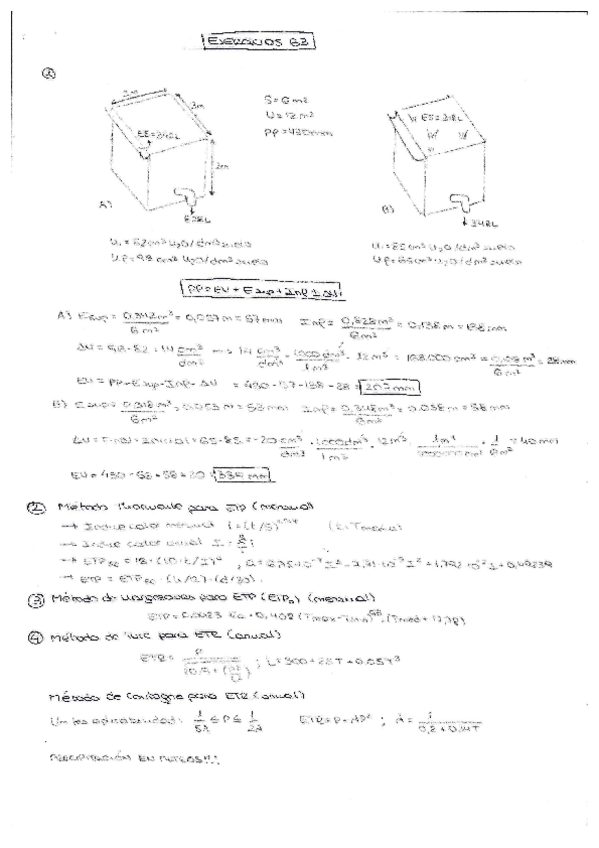 EJERCICIOS B3
①
2m
3m
2m
S = 6 m²
U = 12 m³
PP = 490 mm
ES = 342L
ES = 318L
A)
828L
B)
348L
Ui = 82 cm³ H₂O/dm³ suelo
Uf = 98 cm³ H₂O/dm³ suelo
Ui = 85 cm³ H₂O/dm³ suelo
Uf = 65 cm³ H₂O/dm³ suelo
PP = EV + Esup + Inf ± ΔU
A) Esup = 0,342 m³ / 6 m² = 0,057 m = 57 mm Inf = 0,828 m³ / 6 m² = 0,138 m = 138 mm
ΔU = 98 - 82 = 14 cm³/dm³ → 14 cm³/dm³ · 1000 dm³/1 m³ · 12 m³ = 168.000 cm³ = 0,168 m³ / 6 m² = 28 mm
EV = PP - Esup - Inf - ΔU = 490 - 57 - 138 - 28 = 207 mm
B) Esup = 0,318 m³ / 6 m² = 0,053 m = 53 mm Inf = 0,348 m³ / 6 m² = 0,058 m = 58 mm
ΔU = Final - Inicial = 65 - 85 = -20 cm³/dm³ · 1000 dm³/1 m³ · 12 m³ · 1 m³ · 1/6 m² = 40 mm
② Método Thornwaite para ETP (mensual)
→ Indice calor mensual i = (t/5)^1,514 (t = Tmedia)
→ Indice calor anual I = Σ i
→ ETP = 16 · (10 · t/I)^a , a = 675·10⁻⁹ I³ - 7,71·10⁻⁵ I² + 1,792·10⁻² I + 0,49239
③ Método de Hargreaves para ETP (ETP₀) (mensual)
ETP = 0,0023 Ra · 0,408 (Tmax - Tmin)^0,5 · (Tmed + 17,78)
④ Método de Turc para ETR (anual)
ETR = P / √(0,9 + (P²/L²)) ; L = 300 + 25T + 0,05T³
Método de Coutagne para ETR (anual)
1/8λ ≤ P ≤ 1/2λ ETR = P - λP² ; λ = 1 / 0,8 + 0,14T
PRECIPITACIÓN EN METROS!!!